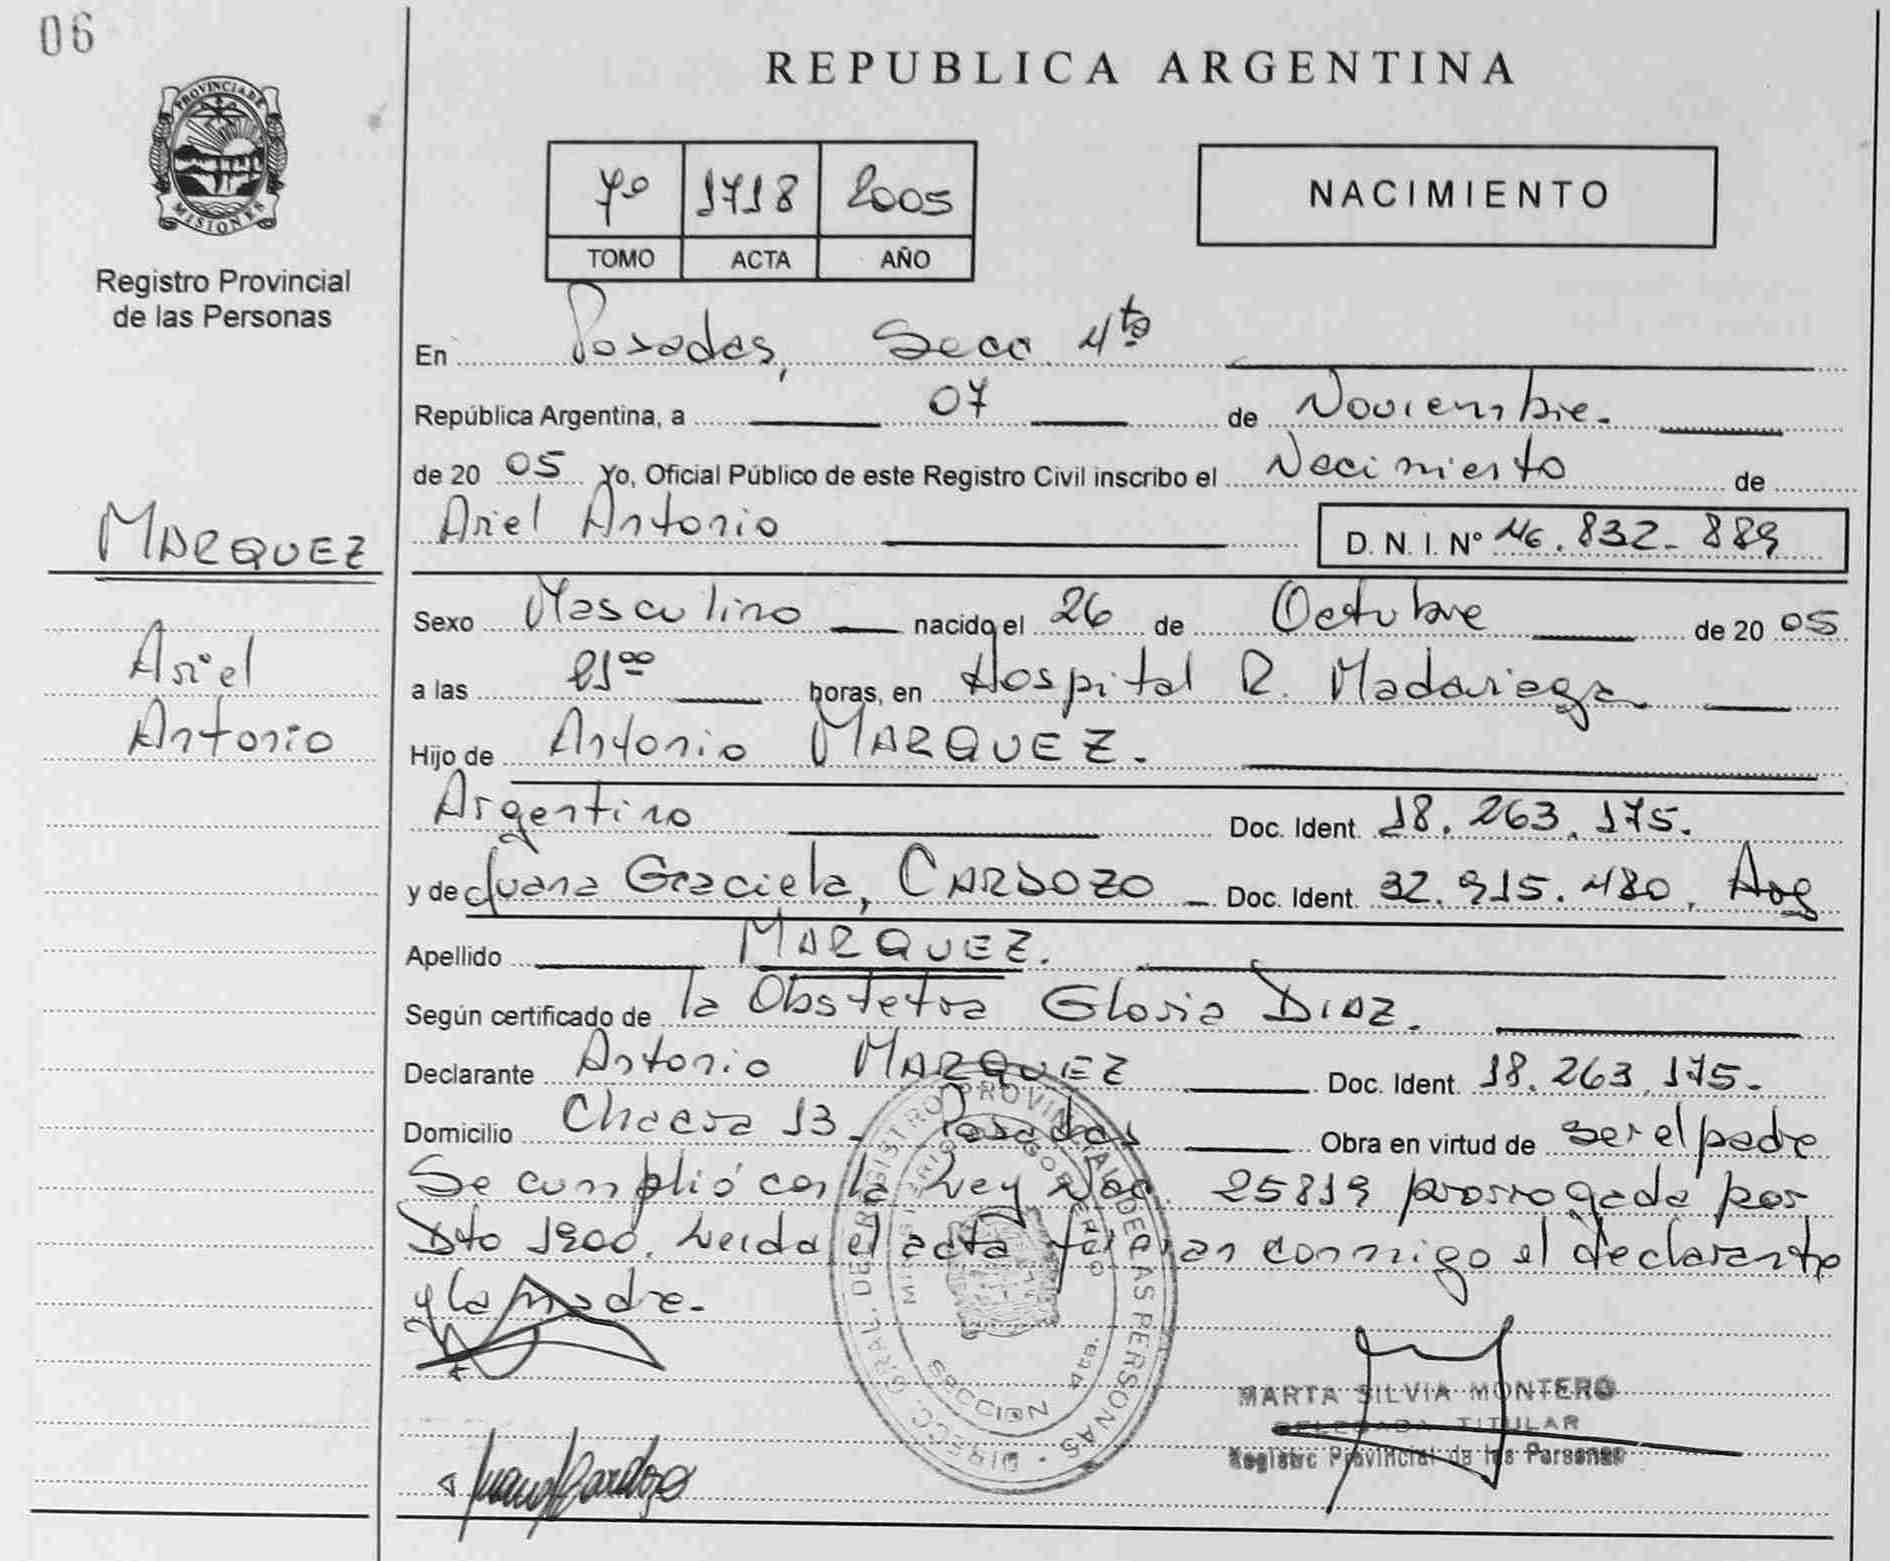 06
PROVINCIA DE
MISIONES
Registro Provincial
de las Personas
MARQUEZ
Ariel
Antonio
REPUBLICA ARGENTINA
7º 1718 2005
TOMO ACTA AÑO
NACIMIENTO
En Posadas, Secc 4ta
República Argentina, a 07 de Noviembre.
de 20 05 Yo, Oficial Público de este Registro Civil inscribo el Nacimiento de
Ariel Antonio D. N. I. Nº 46.832.889
Sexo Masculino nacido el 26 de Octubre de 20 05
a las 21ºº horas, en Hospital R. Madariaga
Hijo de Antonio MARQUEZ.
Argentino Doc. Ident. 18.263.175.
y de Juana Graciela, CARDOZO Doc. Ident. 32.915.480, Arg
Apellido MARQUEZ.
Según certificado de la Obstetra Gloria DIAZ.
Declarante Antonio MARQUEZ Doc. Ident. 18.263.175.
Domicilio Chacra 13 - Posadas Obra en virtud de ser el padre
Se cumplió con la Ley Nac. 25819 prorrogada por
Dto 1900. Leida el acta firman conmigo el declarante
y la madre.
DIRECC. GRAL. DE REGISTRO PROVINCIAL DE LAS PERSONAS
MINISTERIO GOBIERNO
SECCION
MARTA SILVIA MONTERO
DELEGADA TITULAR
Registro Provincial de las Personas
Juana Cardozo